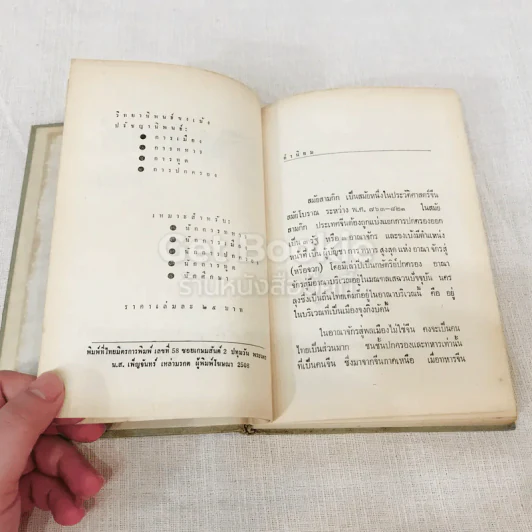 วิทยานิพนธ์ขงเบ้ง
ปรัชญานิพนธ์:
การเมือง
การทหาร
การทูต
การปกครอง
เหมาะสำหรับ:
นักการทูต
นักการเมือง
นักการ
นักการ
นักศึกษา
ราคาเล่มละ ๒๕ บาท
พิมพ์ที่ไทยมิตรการพิมพ์ เลขที่ 58 ซอยเกษมสันต์ 2 ปทุมวัน พระนคร
น.ส. เพ็ญจันทร์ เหล่ามรกต ผู้พิมพ์โฆษณา 2508
คำนิยม
สมัยสามก๊ก เป็นสมัยหนึ่งในประวัติศาสตร์จีน
สมัยโบราณ ระหว่าง พ.ศ. ๗๖๓—๘๒๓ ในสมัย
สามก๊ก ประเทศจีนต้องถูกแบ่งแยกการปกครองออก
เป็นสามก๊ก หรือ ๓ อาณาจักร และขงเบ้งมีตำแหน่ง
หน้าที่ เป็น บัญชาการทหาร สูงสุด แห่ง อาณาจักรสู่
(หรือจวก) โดยมีเล่าปี่เป็นกษัตริย์ปกครอง อาณา
จักรสู่มีอาณาบริเวณอยู่ในมณฑลเสฉวนปัจจุบัน
ในอาณาบริเวณนี้ คือ อยู่
ในบริเวณที่เป็นเมืองจุงกิงในบัดนี้
ในอาณาจักรสู่พลเมืองไม่ใช่จีน คงจะเป็นคน
ไทยเป็นส่วนมาก ชนชั้นปกครองและทหารเท่านั้น
ที่เป็นคนจีน ซึ่งมาจากจีนภาคเหนือ เมื่อทหารจีน
Get Books
ร้านหนังสือ